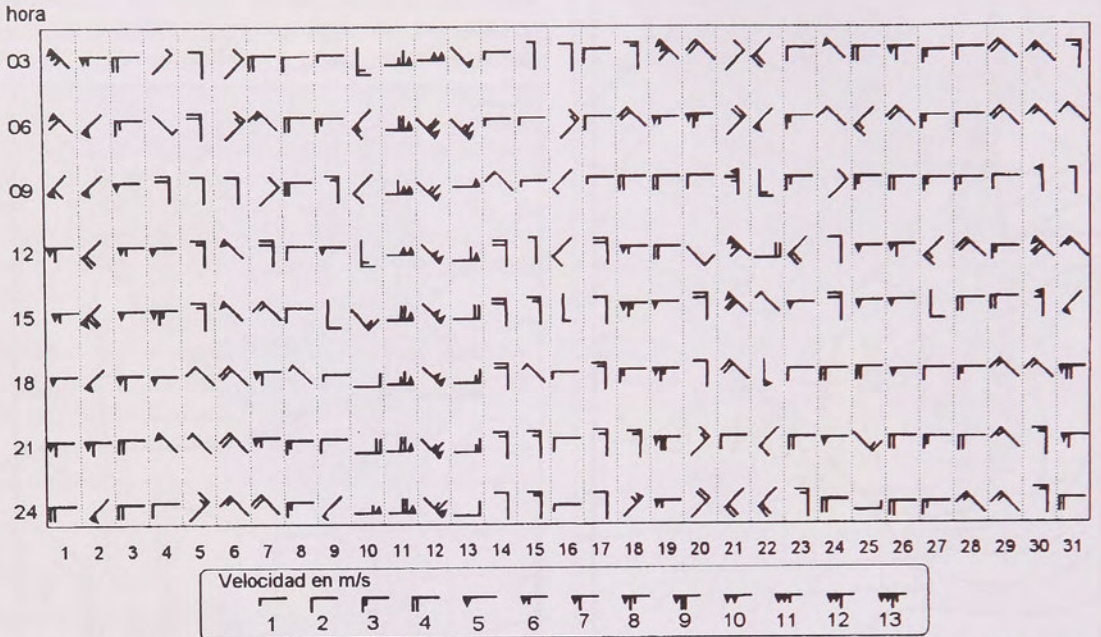 hora
03
06
09
12
15
18
21
24
1 2 3 4 5 6 7 8 9 10 11 12 13 14 15 16 17 18 19 20 21 22 23 24 25 26 27 28 29 30 31
Velocidad en m/s
1 2 3 4 5 6 7 8 9 10 11 12 13